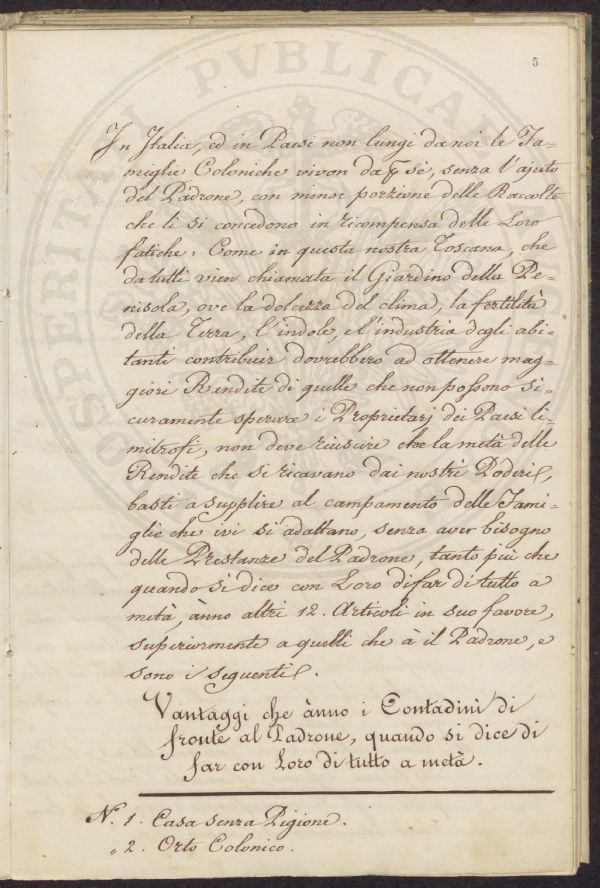 5
In Italia, ed in Paesi non lungi da noi le Fa-
miglie Coloniche vivon da ꝑ sè, senza l'ajuto
del Padrone, con minor porzione delle Raccolte
che li si concedono in ricompensa delle Loro
fatiche: Come in questa nostra Toscana, che
da tutti vien chiamata il Giardino della Pe-
nisola, ove la dolcezza del clima, la fertilità
della Terra, l'indole, e l'industria degli abi-
tanti contribuir dovrebbero ad ottenere mag-
giori Rendite di quelle che non possono si-
curamente sperare i Proprietarj dei Paesi li-
mitrofi, non deve riuscire che la metà delle
Rendite che si ricavano dai nostri Poderi,
basti a supplire al campamento delle Fami-
glie che ivi si adattano, senza aver bisogno
delle Prestanze del Padrone, tanto più che
quando si dice con Loro di far di tutto a
metà, ànno altri 12. Articoli in suo favore,
superiormente a quelli che à il Padrone, e
sono i seguenti.
Vantaggi che ànno i Contadini di
fronte al Padrone, quando si dice di
far con Loro di tutto a metà.
N. 1. Casa senza Pigione.
„ 2. Orto Colonico.